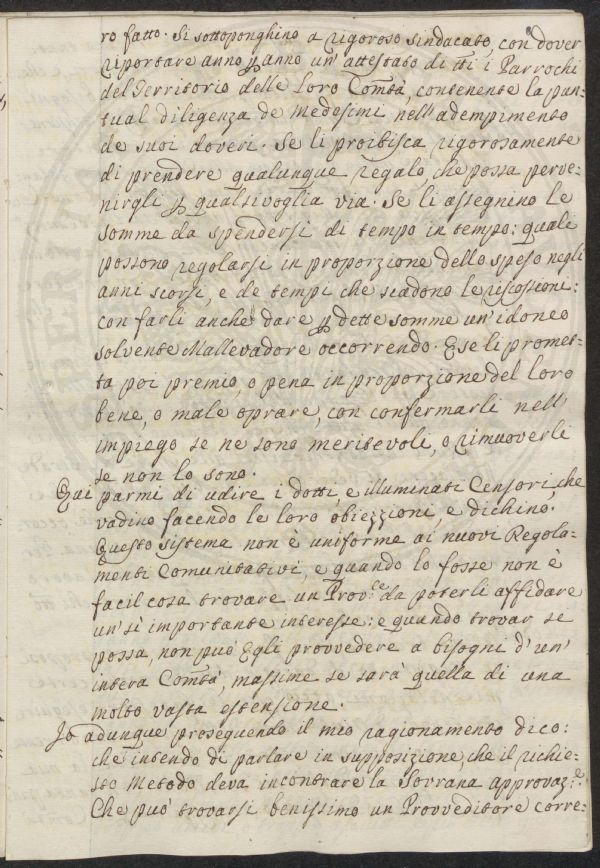 ro fatto. Si sottoponghino a rigoroso sindacato, con dover
riportare anno p anno un'attestato di tti i Parrochi
del Territorio delle Loro Comtà, contenente la pun=
tual diligenza de Medesimi nell'adempimento
de suoi doveri. Se li proibisca rigorosamente
di prendere qualunque regalo, che possa perve=
nirgli p qualsivoglia via. Se li assegnino le
somme da spendersi di tempo in tempo: quali
possono regolarsi in proporzione dello speso negli
anni scorsi, e de tempi che scadono le riscossioni:
con farli anche dare p dette somme un'idoneo
solvente Mallevadore occorrendo. E se li promet=
ta poi premio, o pena in proporzione del loro
bene, o male oprare, con confermarli nell'
impiego se ne sono meritevoli, o rimuoverli
se non lo sono.
Qui parmi di udire i dotti e illuminati Censori, che
vadino facendo le loro obiezzioni, e dichino.
Questo sistema non è uniforme ai nuovi Regola=
menti Comunitativi, e quando lo fosse non è
facil cosa trovare un Prov.re da poterli affidare
un'sì importante interesse: e quando trovar se
possa, non può Egli provvedere a bisogni d'un'
intera Comtà, massime se sarà quella di una
molto vasta estensione.
Io adunque proseguendo il mio ragionamento dico:
che intendo di parlare in supposizione, che il richie=
sto Metodo deva incontrare la Sovrana approvaz.e
Che può trovarsi benissimo un Provveditore corre=